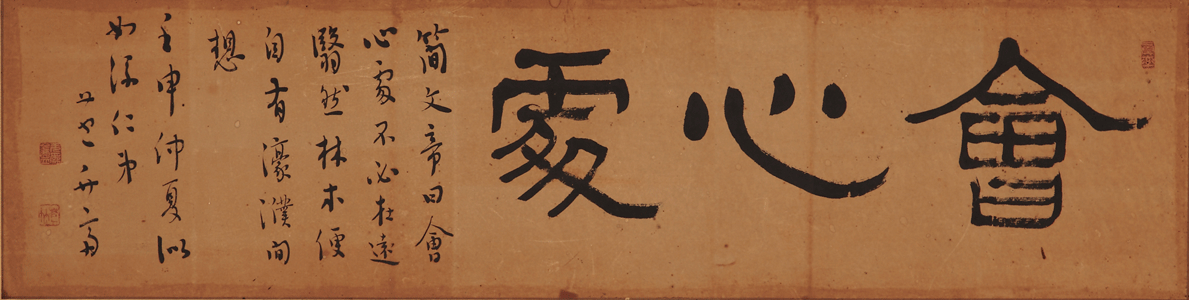 會心處
簡文帝曰會
心處不必在遠
翳然林木便
自有濠濮間
想
壬申仲夏似
仁弟